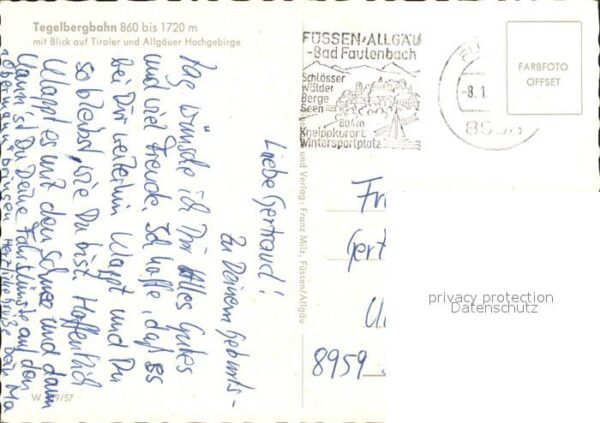 Tegelbergbahn 860 bis 1720 m
mit Blick auf Tiroler und Allgäuer Hochgebirge
Liebe Gertraud!
Zu Deinem Geburts-
tag wünsche ich Dir Alles Gute
und viel Freude. Ich hoffe, daß es
bei Dir weiterhin klappt und Du
so bleibst wie Du bist. Hoffentlich
klappt es mit dem Schnee und dann
kannst Du Deine Fahrkünste auf den
beweisen. Herzliche Grüße Dein
W 9/57
und Verlag: Franz Milz, Füssen/Allgäu
FÜSSEN/ALLGÄU
-Bad Faulenbach
Schlösser
Wälder
Berge
Seen
804m
Kneippkurort
Wintersportplatz
-8.1.
FARBFOTO
OFFSET
Gert
8959
privacy protection
Datenschutz